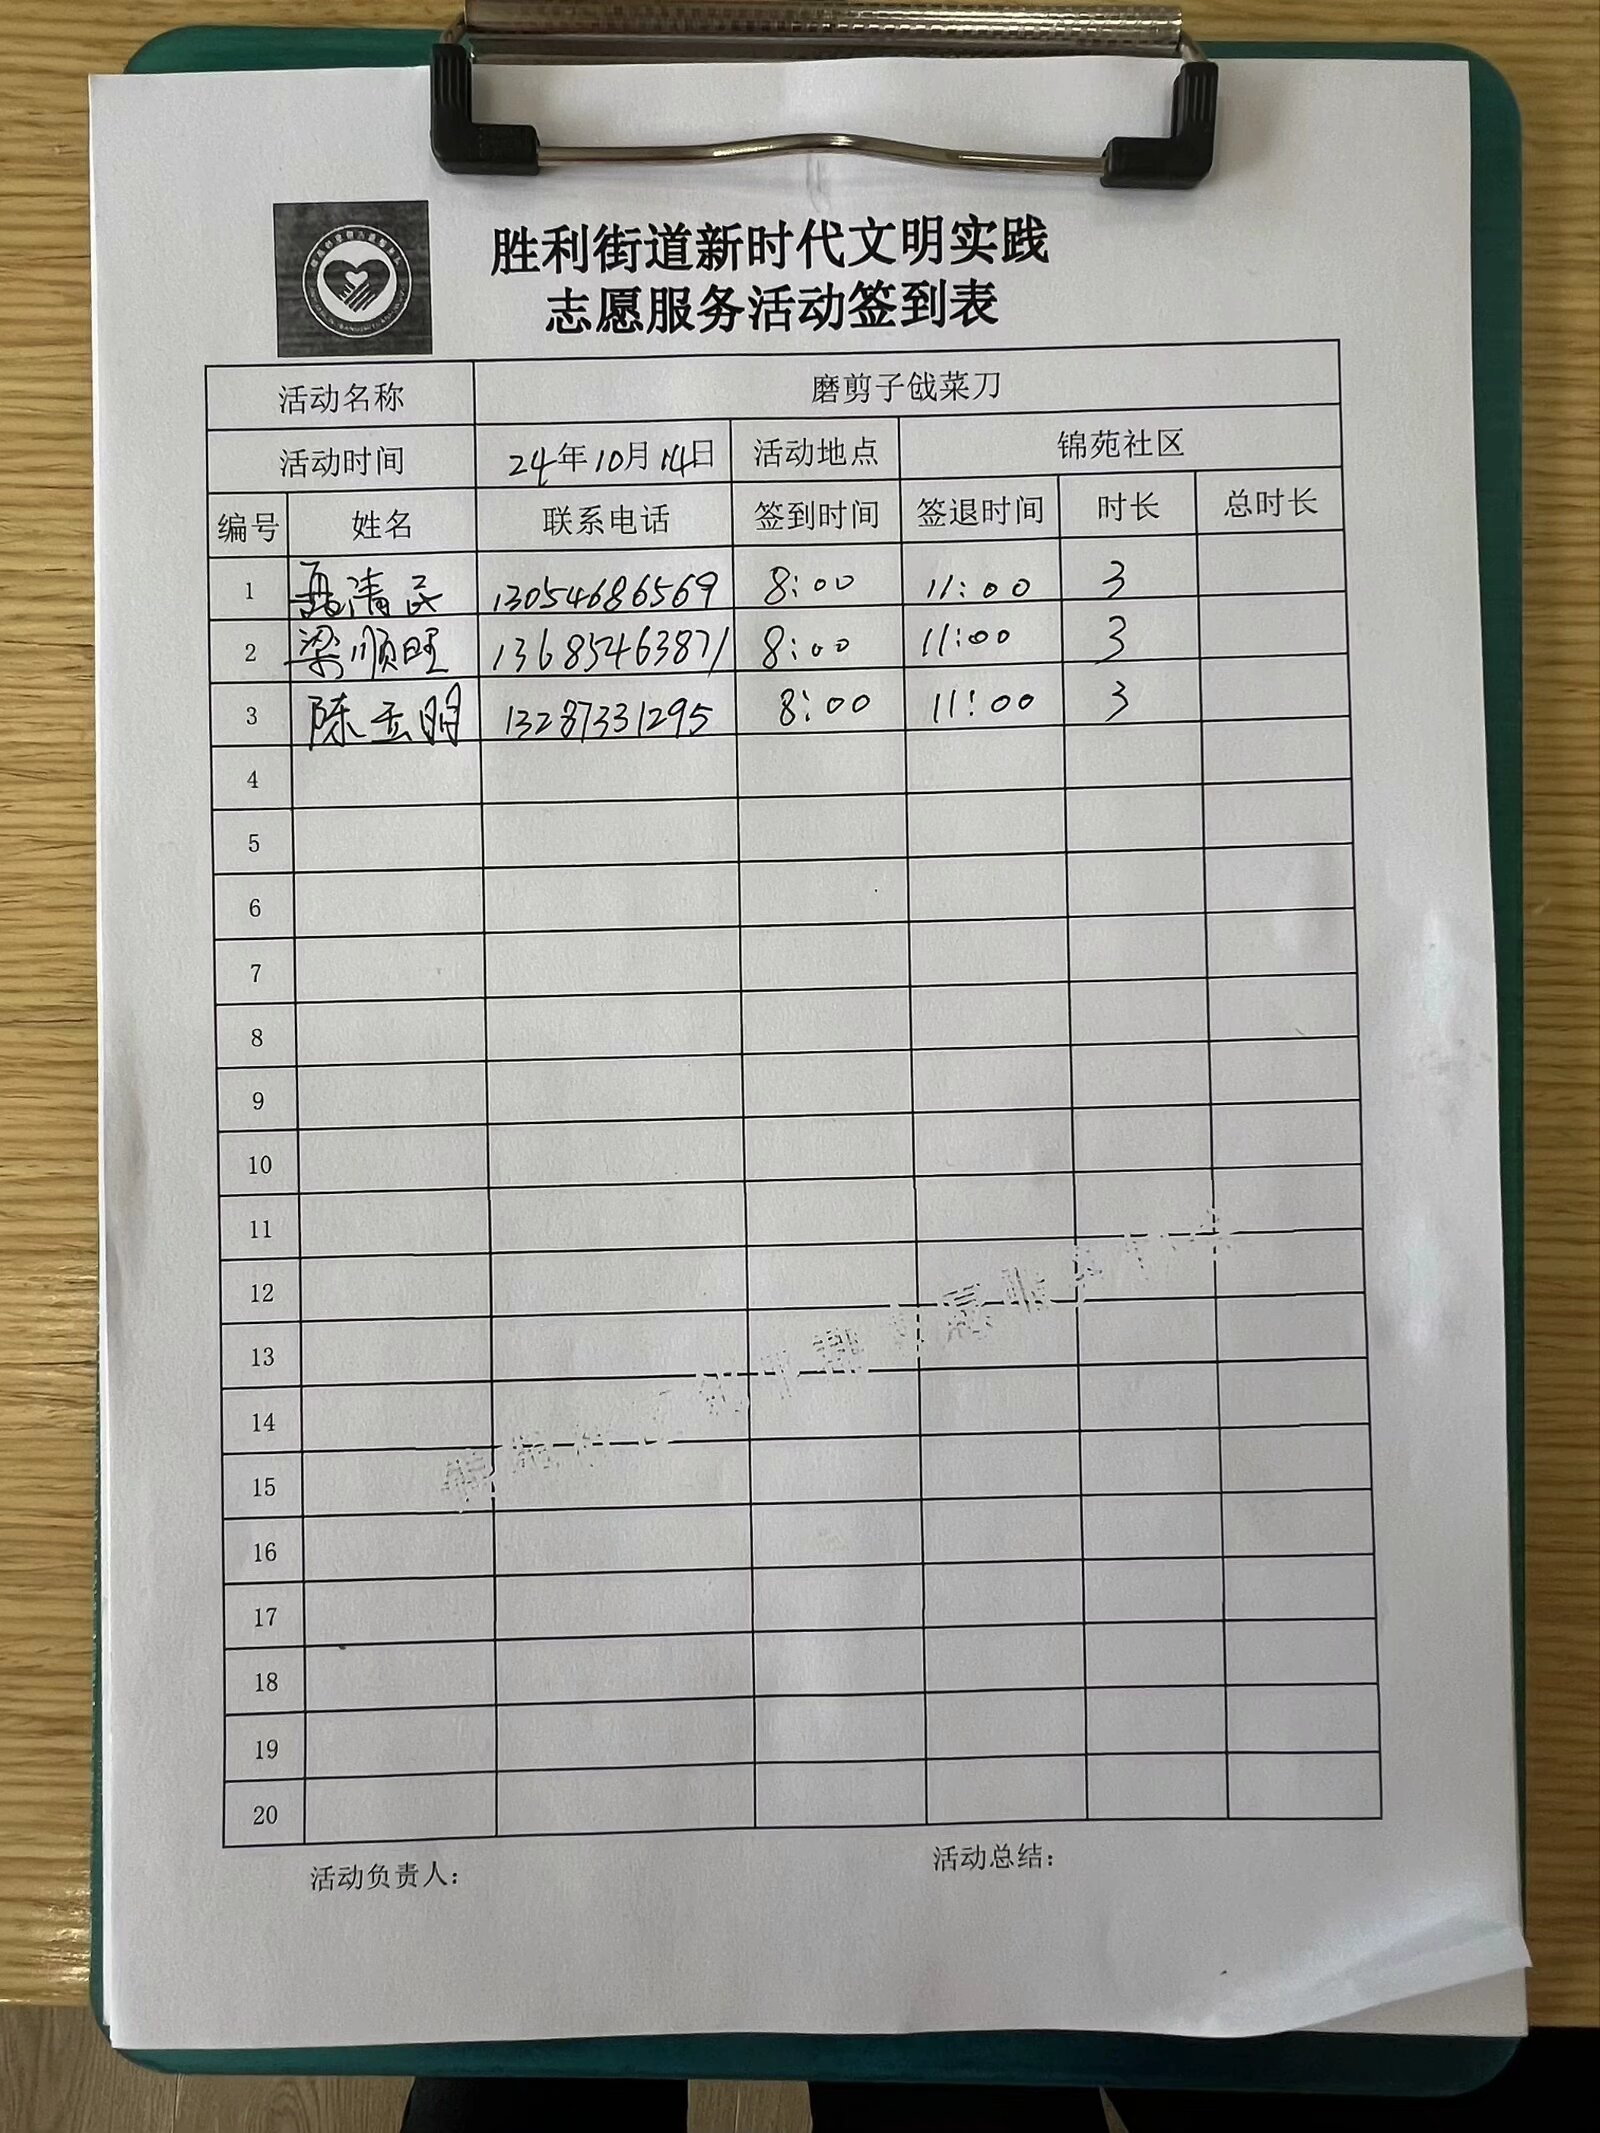 胜利街道新时代文明实践
志愿服务活动签到表
活动名称 磨剪子戗菜刀
活动时间 24年10月14日 活动地点 锦苑社区
编号 姓名 联系电话 签到时间 签退时间 时长 总时长
1 聂清民 13054686569 8:00 11:00 3
2 梁顺旺 13685463871 8:00 11:00 3
3 陈玉明 13287331295 8:00 11:00 3
4
5
6
7
8
9
10
11
12
13
14
15
16
17
18
19
20
活动负责人: 活动总结: